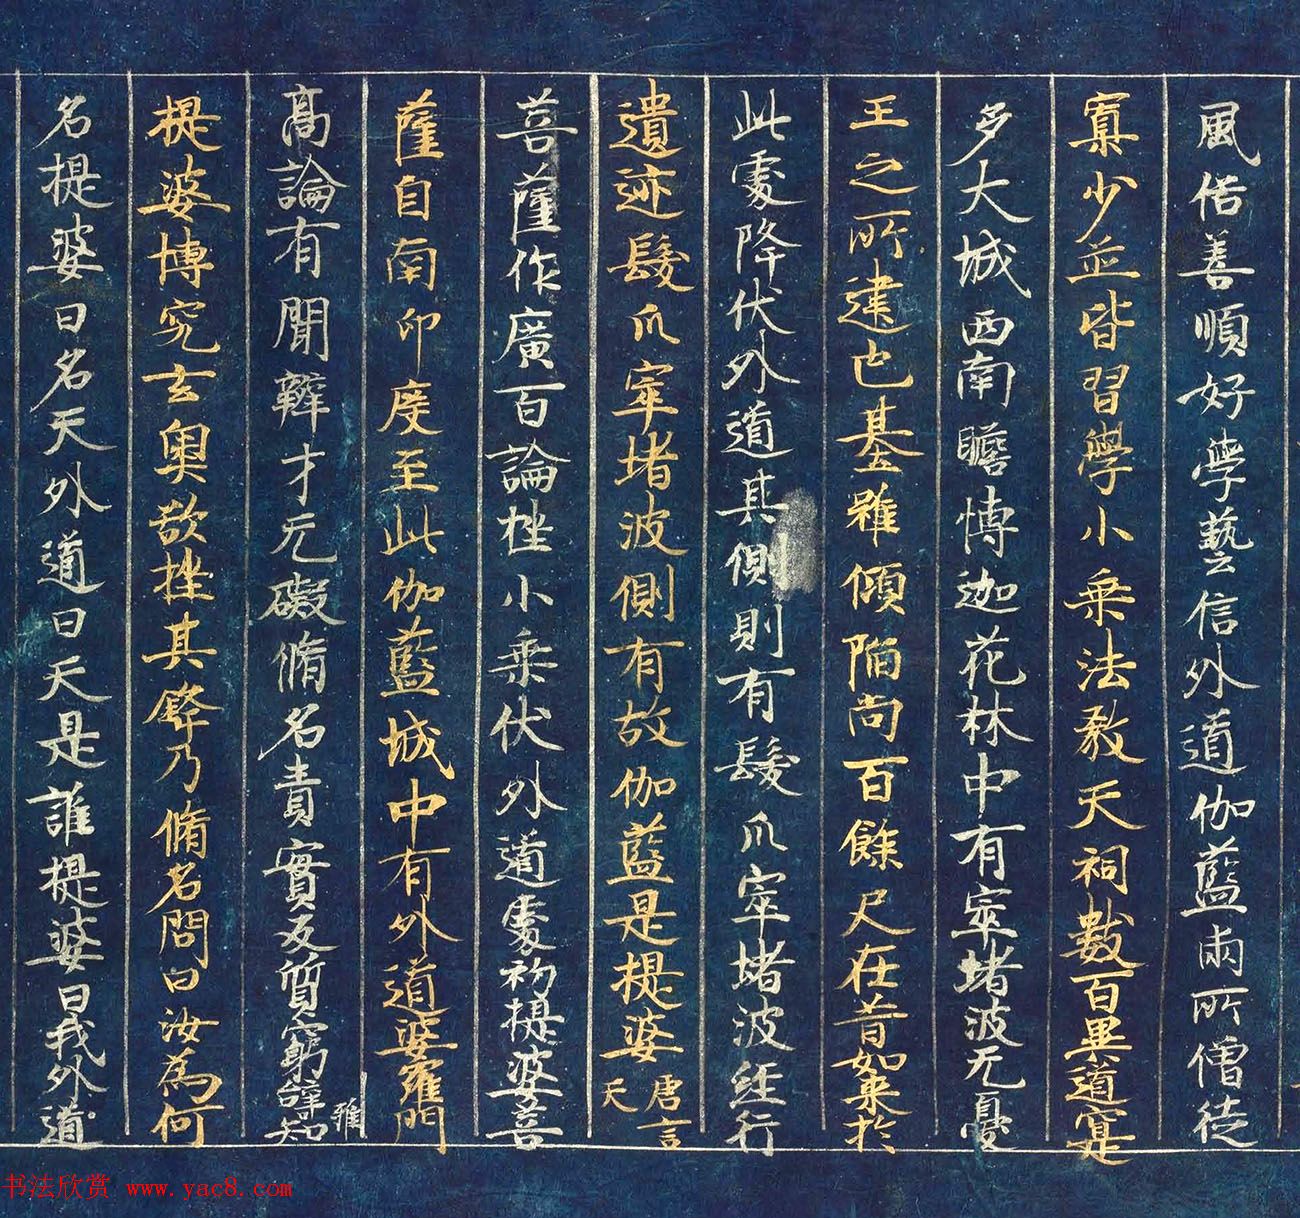 風俗善順好學藝信外道伽藍兩所僧徒
寡少並皆習學小乘法教天祠數百異道寔
多大城西南瞻博迦花林中有窣堵波无憂
王之所建也基雖傾陷尚百餘尺在昔如來於
此處降伏外道其側則有髮爪窣堵波經行
遺迹髮爪窣堵波側有故伽藍是提婆唐言天
菩薩作廣百論挫小乘伏外道處初提婆菩
薩自南印度至此伽藍城中有外道婆羅門
高論有聞辯才无礙脩名責實反質窮辭雅知
提婆博究玄奧欲挫其鋒乃脩名問曰汝為何
名提婆曰名天外道曰天是誰提婆曰我外道
书法欣赏 www.yac8.com